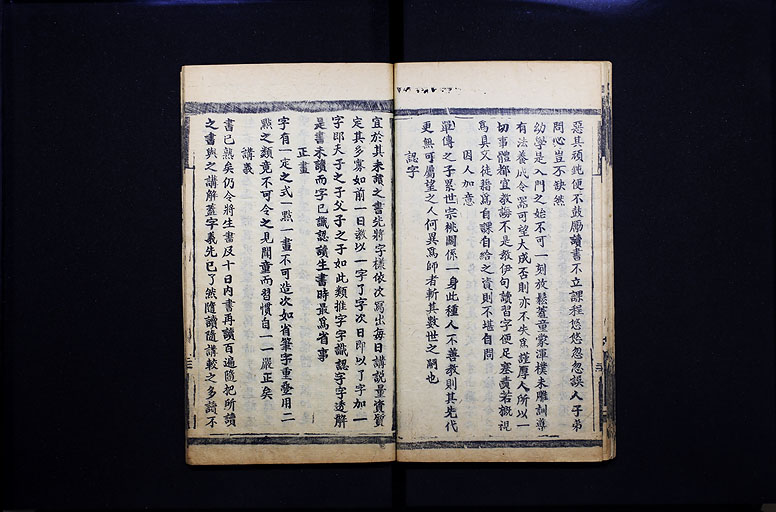 惡其頑鈍便不鼓勵讀書不立課程悠悠忽忽誤人子弟
問心豈不缺然
幼學是入門之始不可一刻放鬆蓋童蒙渾樸未雕訓導
有法養成令器可望大成否則亦不失爲謹厚人所以一
切事體都宜教誨不是教伊句讀習字便足塞責若概視
爲具文徒藉爲自課自給之資則不堪自問
因人加意
單傳之子累世宗祧關係一身此種人不善教則其先代
更無可屬望之人何異爲師者斬其數世之嗣也
認字
宜於其未讀之書先將字樣依次寫出每日講說量資質
定其多寡如前一日教以一字了字次日即以了字加一
字即天子之子父子之子如此類推字字識認字字透解
是書未讀而字已識認讀生書時最爲省事
正畫
字有一定之式一點一畫不可造次如省筆字重疊用二
點之類竟不可令之見聞童而習慣自一一嚴正矣
講義
書已熟矣仍令將生書及十日內書再讀百遍隨把所讀
之書與之講解蓋字義先已了然隨讀隨講較之多讀不